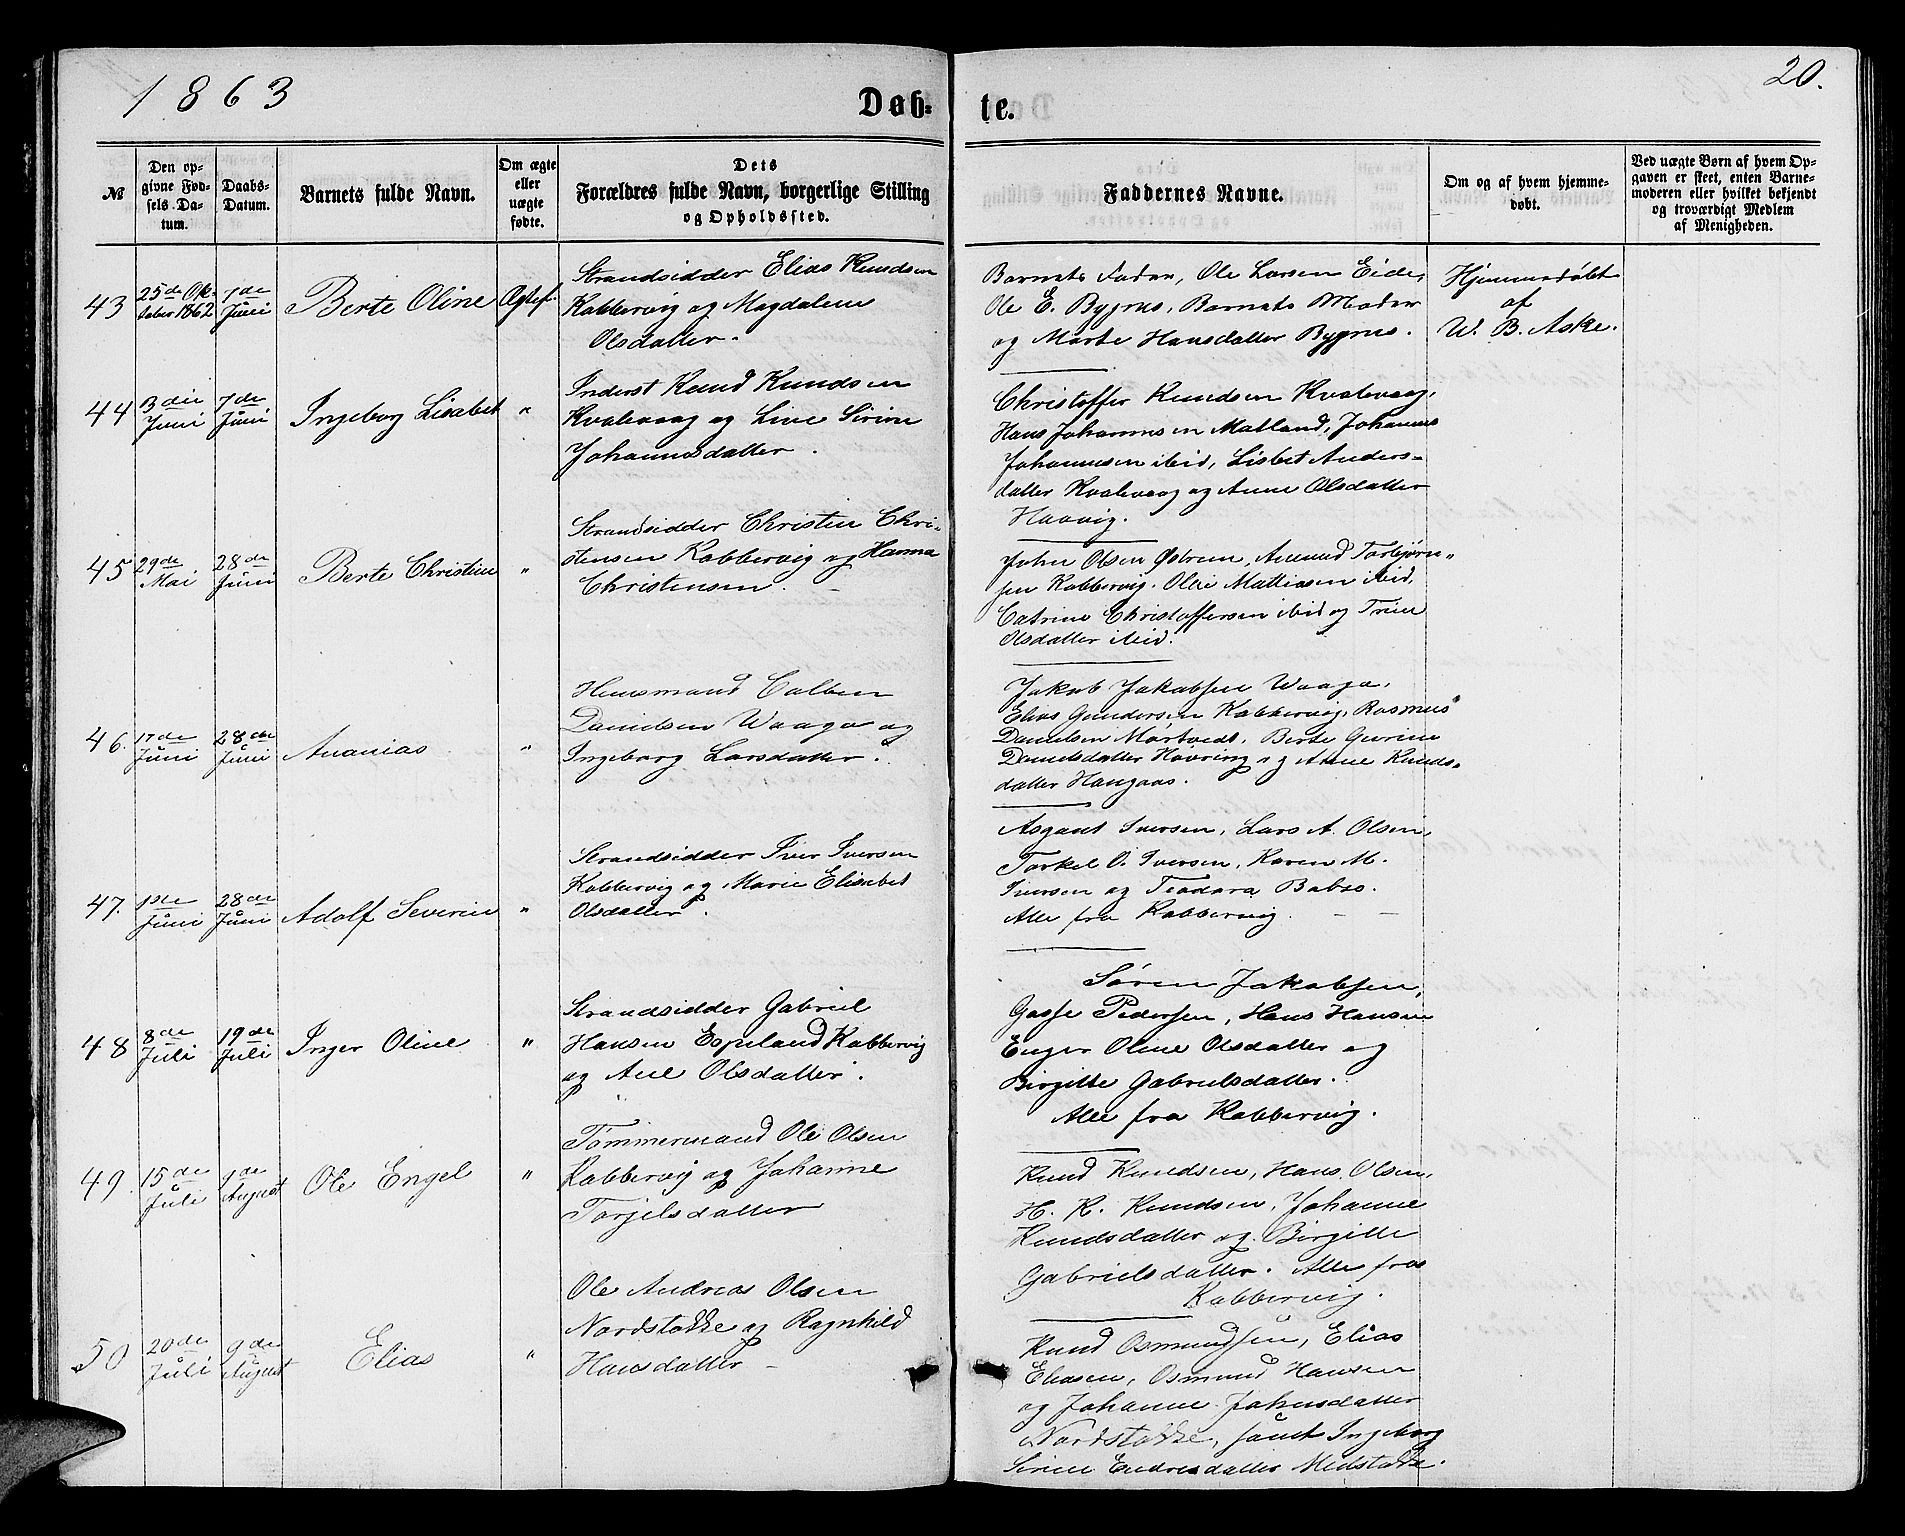 1863
Døb-
te.
20.
№
Den op-
givne Fød-
sels Da-
tum.
Daabs-
Datum.
Barnets fulde Navn.
Om ægte
eller
uægte
fødte.
Dets
Forældres fulde Navn, borgerlige Stilling
og Opholdssted.
Faddernes Navne.
Om og af hvem hjemme-
døbt.
Ved uægte Børn af hvem Op-
gaven er skeet, enten Barne-
moderen eller hvilket bekjendt
og troværdigt Medlem
af Menigheden.
43
25de Ok-
tober 1862
7de
Juni
Berte Oline
Ægtef.
Strandsidder Elias Knudsen
Kobbervig og Magdalene
Olsdatter.
Barnets Fader, Ole Larsen Eide,
Ole E. Bygnes, Barnets Moder
og Marte Hansdatter Bygnes.
Hjemmedøbt
af
W. B. Aske.
44
3die
Juni
7de
Juni
Ingeborg Lisabet
"
Inderst Knud Knudsen
Kvalevaag og Line Sirine
Johannesdatter.
Christoffer Knudsen Kvalevaag,
Hans Johannesen Matland, Johannes
Johannesen ibid, Lisbet Anders-
datter Kvalevaag og Anne Olsdatter
Haavig.
45
29de
Mai
28de
Juni
Berte Christine
"
Strandsidder Christen Chri-
stensen Kobbervig og Hanna
Christensen.
John Olsen Østrem, Aamund Torbjørn-
sen Kobbervig, Mattiasen ibid,
Catrine Christoffersen ibid og Trine
Olsdatter ibid.
46.
17de
Juni
28de
Juni
Ananias
"
Huusmand
Danielsen Waaga og
Ingeborg Larsdatter.
Jakob Jakobsen Waaga,
Elias Gundersen Kobbervig, Rasmus
Danielsen Mørtvedt, Berte Gurine
Danielsdatter Høvring og Anne Knuds-
datter Haugaas.
47.
1ste
Juni
28de
Juni
Adolf Severin
"
Strandsidder Iver Iversen
Kobbervig og Marie Elisabet
Olsdatter.
Asgaut Iversen, Lars A. Olsen,
Torkel O. Iversen, Karen M.
Iversen og Teodora
Alle fra Kobbervig.
48
8de
Juli
19de
Juli
Inger Oline
"
Strandsidder Gabriel
Hansen Espeland Kobbervig
og Ane Olsdatter.
Søren Jakobsen,
Gosse Pedersen, Hans Hansen
Enger Oline Olsdatter og
Birgitte Gabrielsdatter.
Alle fra Kobbervig.
49.
15de
Juli
9de
August
Ole Engel
"
Tømmermand Ole Olsen
Kobbervig og Johanne
Torjelsdatter
Knud Knudsen, Hans Olsen,
H. K. Knudsen, Johanne
Knudsdatter og Birgitte
Gabrielsdatter. Alle fra
Kobbervig.
50
20de
Juli
9de
August
Elias
"
Ole Andreas Olsen
Nordstokke og Ragnhild
Hansdatter
Knud Osmundsen, Elias
Eliasen, Osmund Hansen
og Johanne Johnsdatter
Nordstokke, samt Ingeborg
Serine Endresdatter Midstokke.